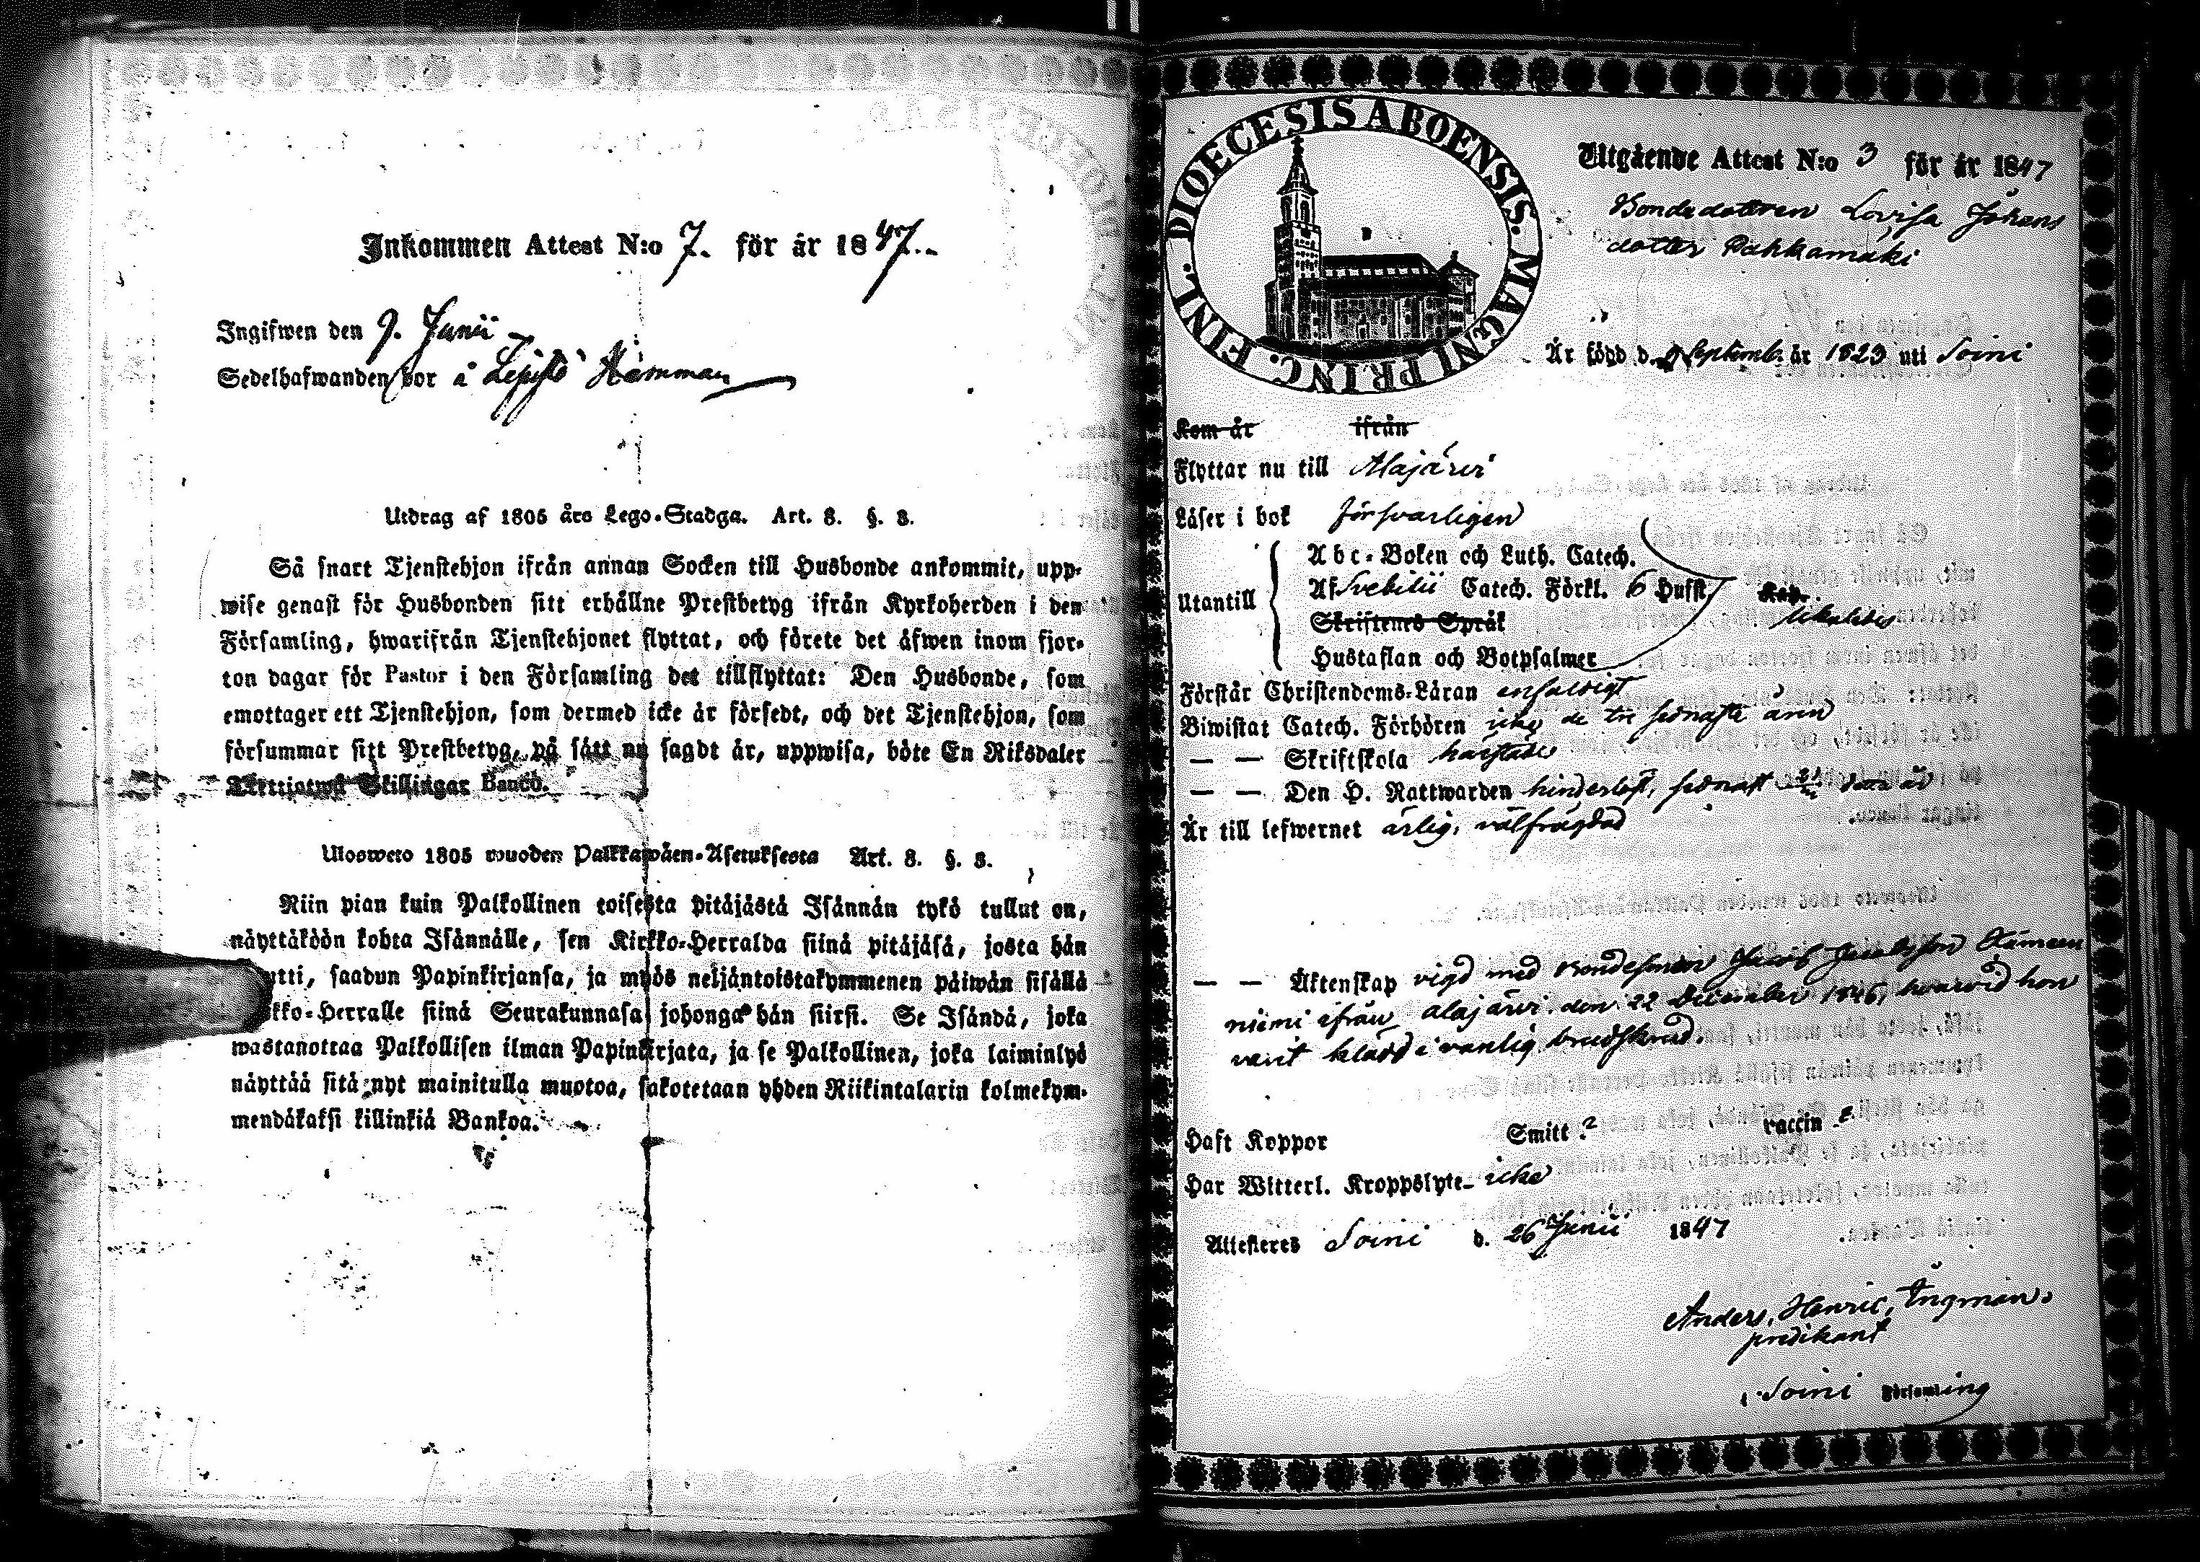 Inkommen Attest N:o 7. för år 1847.
Ingifwen den 9. Junii
Sedelhafwanden bor å
Utdrag af 1805 års Lego-Stadga. Art. 8. §. 3.
Så snart Tjenstehjon ifrån annan Socken till Husbonde ankommit, upp-
wise genast för Husbonden sitt erhållne Prestbetyg ifrån Kyrkoherden i den
Församling, hwarifrån Tjenstehjonet flyttat, och förete det äfwen inom fjor-
ton dagar för Pastor i den Församling det tillflyttat: Den Husbonde, som
emottager ett Tjenstehjon, som dermed icke är försedt, och det Tjenstehjon, som
försummar sitt Prestbetyg, på sätt nu sagdt är, uppwisa, böte En Riksdaler
Trettiotwå Skillingar Banco.
Ulosweto 1805 wuoden Palkkawäen-Asetuksesta Art. 8. §. 3.
Niin pian kuin Palkollinen toisesta pitäjästä Isännän tykö tullut on,
näyttäköön kohta Isännälle, sen Kirkko-Herralda siinä pitäjäsä, josta hän
muutti, saadun Papinkirjansa, ja myös neljäntoistakymmenen päiwän sisällä
Kirkko-Herralle siinä Seurakunnasa johonga hän siirsi. Se Isändä, joka
wastanottaa Palkollisen ilman Papinkirjata, ja se Palkollinen, joka laiminlyö
näyttää sitä nyt mainitulla muotoa, sakotetaan yhden Riikintalarin kolmekym-
mendäkaksi killinkiä Bankoa.
DIOECESIS ABOENSIS. MAGNI PRINC. FINL.
Utgående Attest N:o 3 för år 1847
Bondedottren Lovisa Johans
dotter Pahkamäki
Är född d. 9 Septemb. år 1823 uti Soini
Kom år ifrån
Flyttar nu till Alajärvi
Läser i bok försvarligen
Utantill
Abc-Boken och Luth. Catech.
Af Svebilii Catech. Förkl. 6 Hufst.
Skriftenes Språk
Hustaflan och Botpsalmer
likaledes
Förstår Christendoms-Läran enfaldigt
Biwistat Catech. Förhören icke de tre sednaste åren
— — Skriftskola
— — Den H. Nattwarden hinderlöst, sednast
Är till lefwernet ärlig, välfrägdad
— — Äktenskap vigd med Bondesonen Jacob Jacobsson Hämeen
niemi ifrån Alajärvi den 22 December 1846, hvarvid hon
varit klädd i vanlig brudskrud.
Haft Koppor Smitt. ? vaccin
Har Witterl. Kroppslyte icke
Attesteres Soini d. 26 Junii 1847
Anders Henric Ingman.
predikant
i Soini Församling